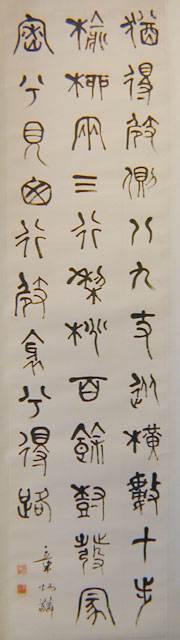 猶得敧側八九丈從橫數十步
榆柳兩三行梨桃百餘樹撥蒙
密兮見囪行敧衺兮得路
章炳麟